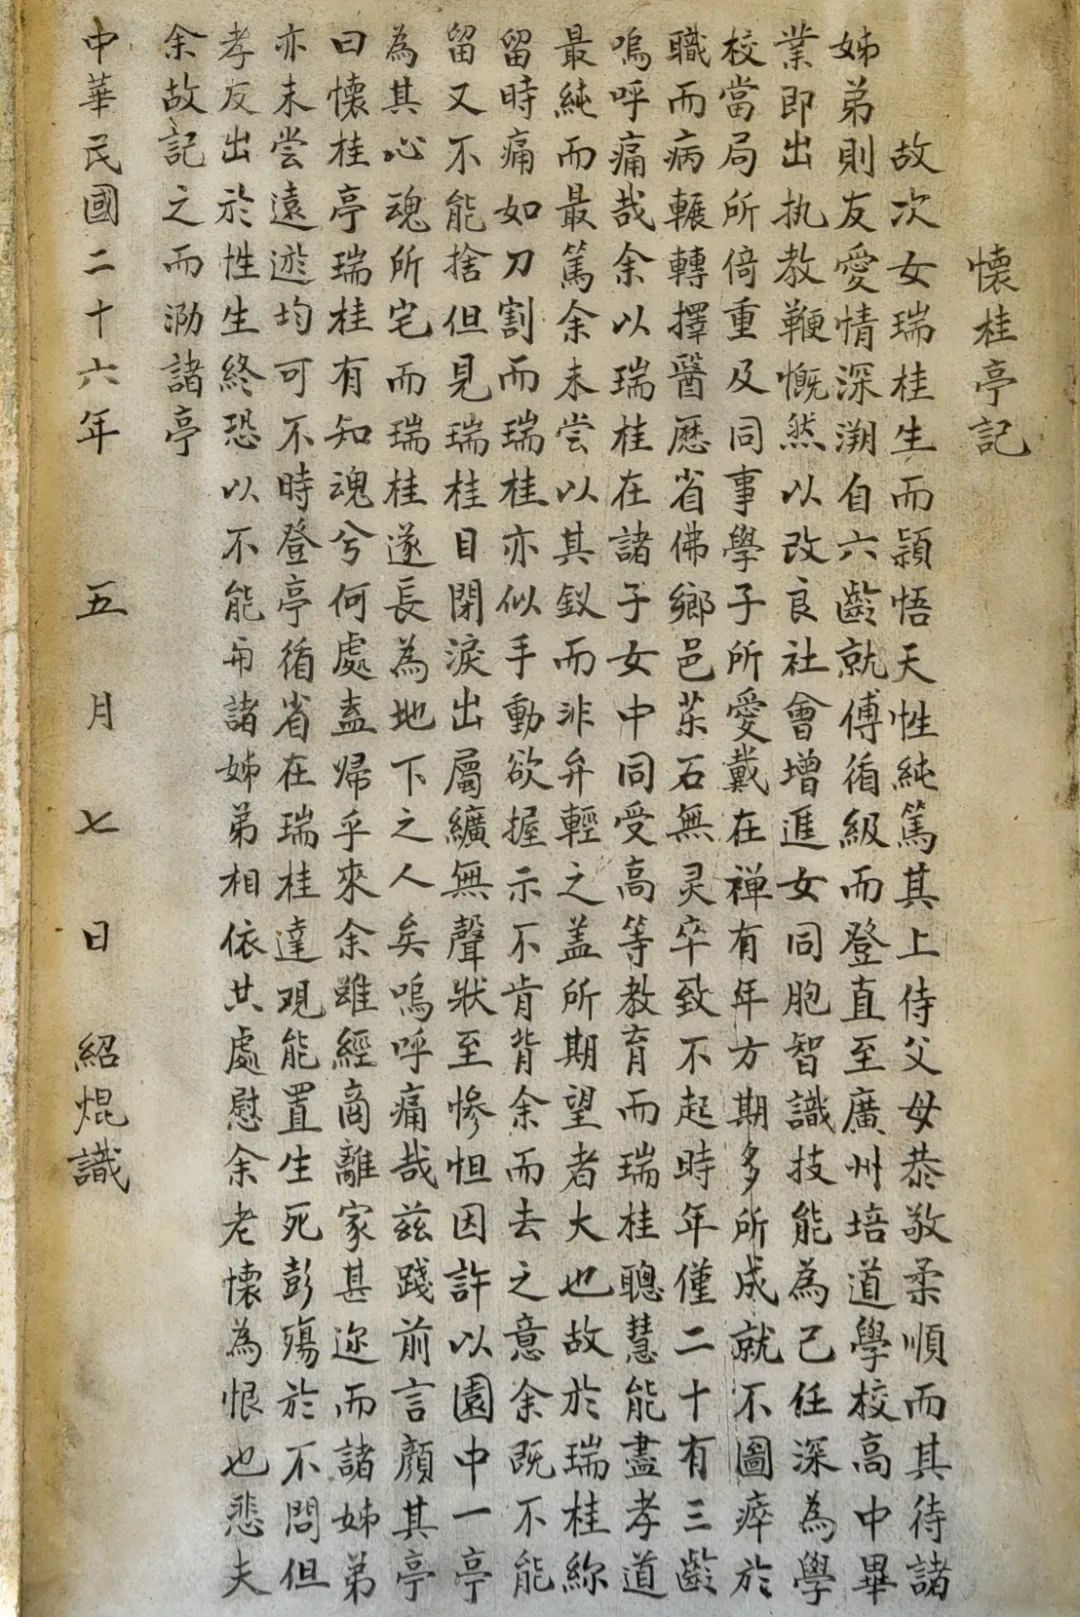 懷桂亭記
故次女瑞桂生而穎悟天性純篤其上侍父母恭敬柔順而其待諸
姊弟則友愛情深溯自六齡就傅循級而登直至廣州培道學校高中畢
業即出执教鞭慨然以改良社會增進女同胞智識技能為己任深為學
校當局所倚重及同事學子所愛戴在禅有年方期多所成就不圖瘁於
職而病輾轉擇醫歷省佛鄉邑茱石無灵卒致不起時年僅二十有三齡
嗚呼痛哉余以瑞桂在諸子女中同受高等教育而瑞桂聰慧能盡孝道
最純而最篤余未尝以其釵而非弁輕之盖所期望者大也故於瑞桂弥
留時痛如刀割而瑞桂亦似手動欲握示不肯背余而去之意余既不能
留又不能捨但見瑞桂目閉淚出屬纊無聲狀至慘怛因許以園中一亭
為其心魂所宅而瑞桂遂長為地下之人矣嗚呼痛哉兹踐前言顏其亭
曰懷桂亭瑞桂有知魂兮何處盍歸乎來余雖經商離家甚迩而諸姊弟
亦未尝遠遊均可不時登亭循省在瑞桂達观能置生死彭殤於不問但
孝友出於性生終恐以不能再諸姊弟相依共處慰余老懷為恨也悲夫
余故記之而泐諸亭
中華民國二十六年 五月七日 紹焜識